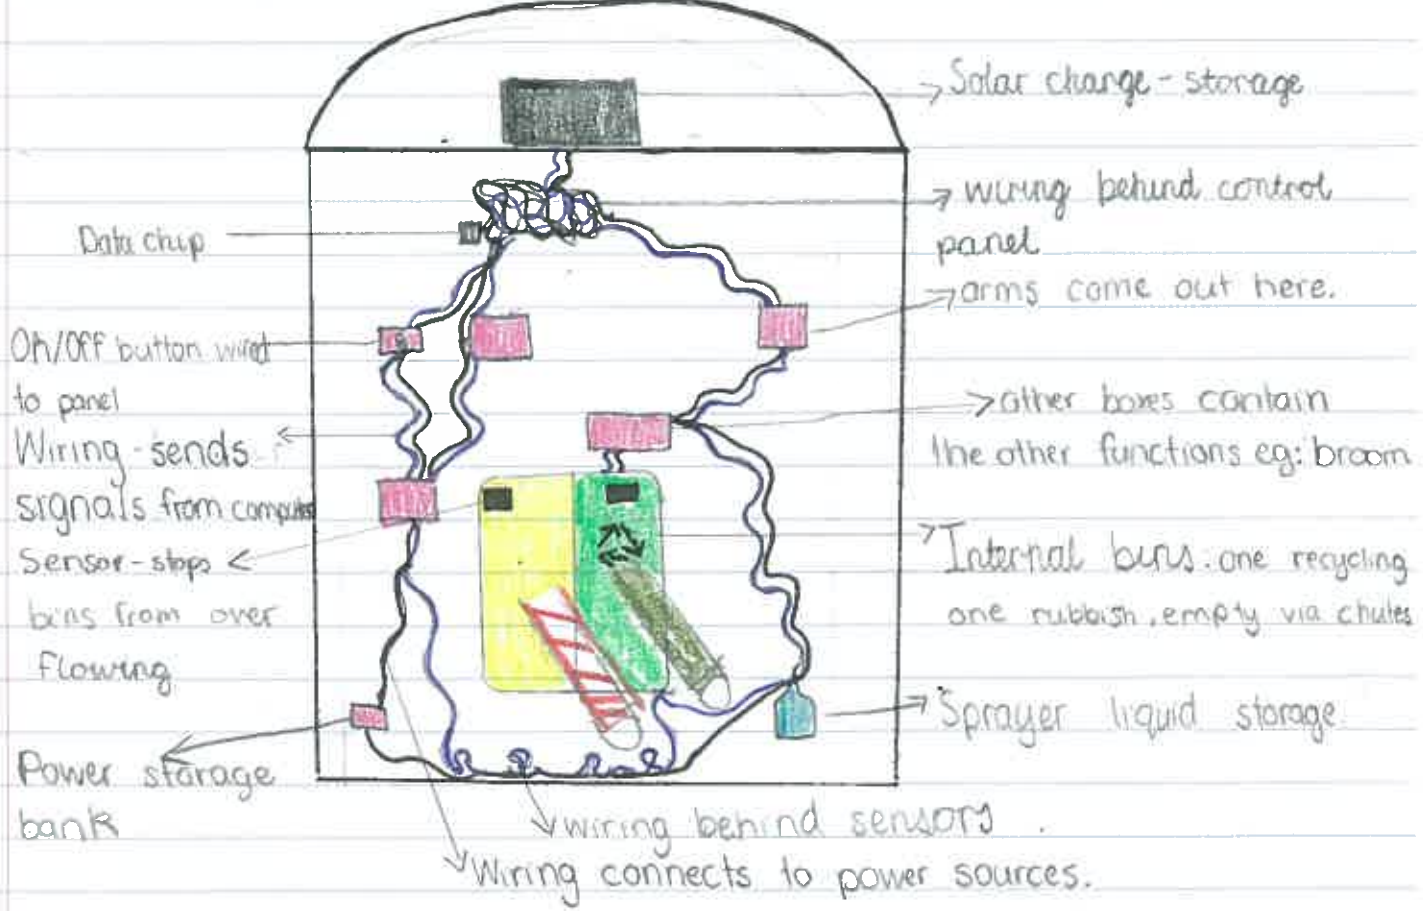 Solar change - storage
wiring behind control
panel
arms come out here.
other boxes contain
the other functions eg: broom
Internal bins. one recycling
one rubbish, empty via chutes
Sprayer liquid storage
Data chip
On/Off button wired
to panel
Wiring - sends
signals from computer
Sensor - stops
bins from over
flowing
Power storage
bank
wiring behind sensors.
Wiring connects to power sources.